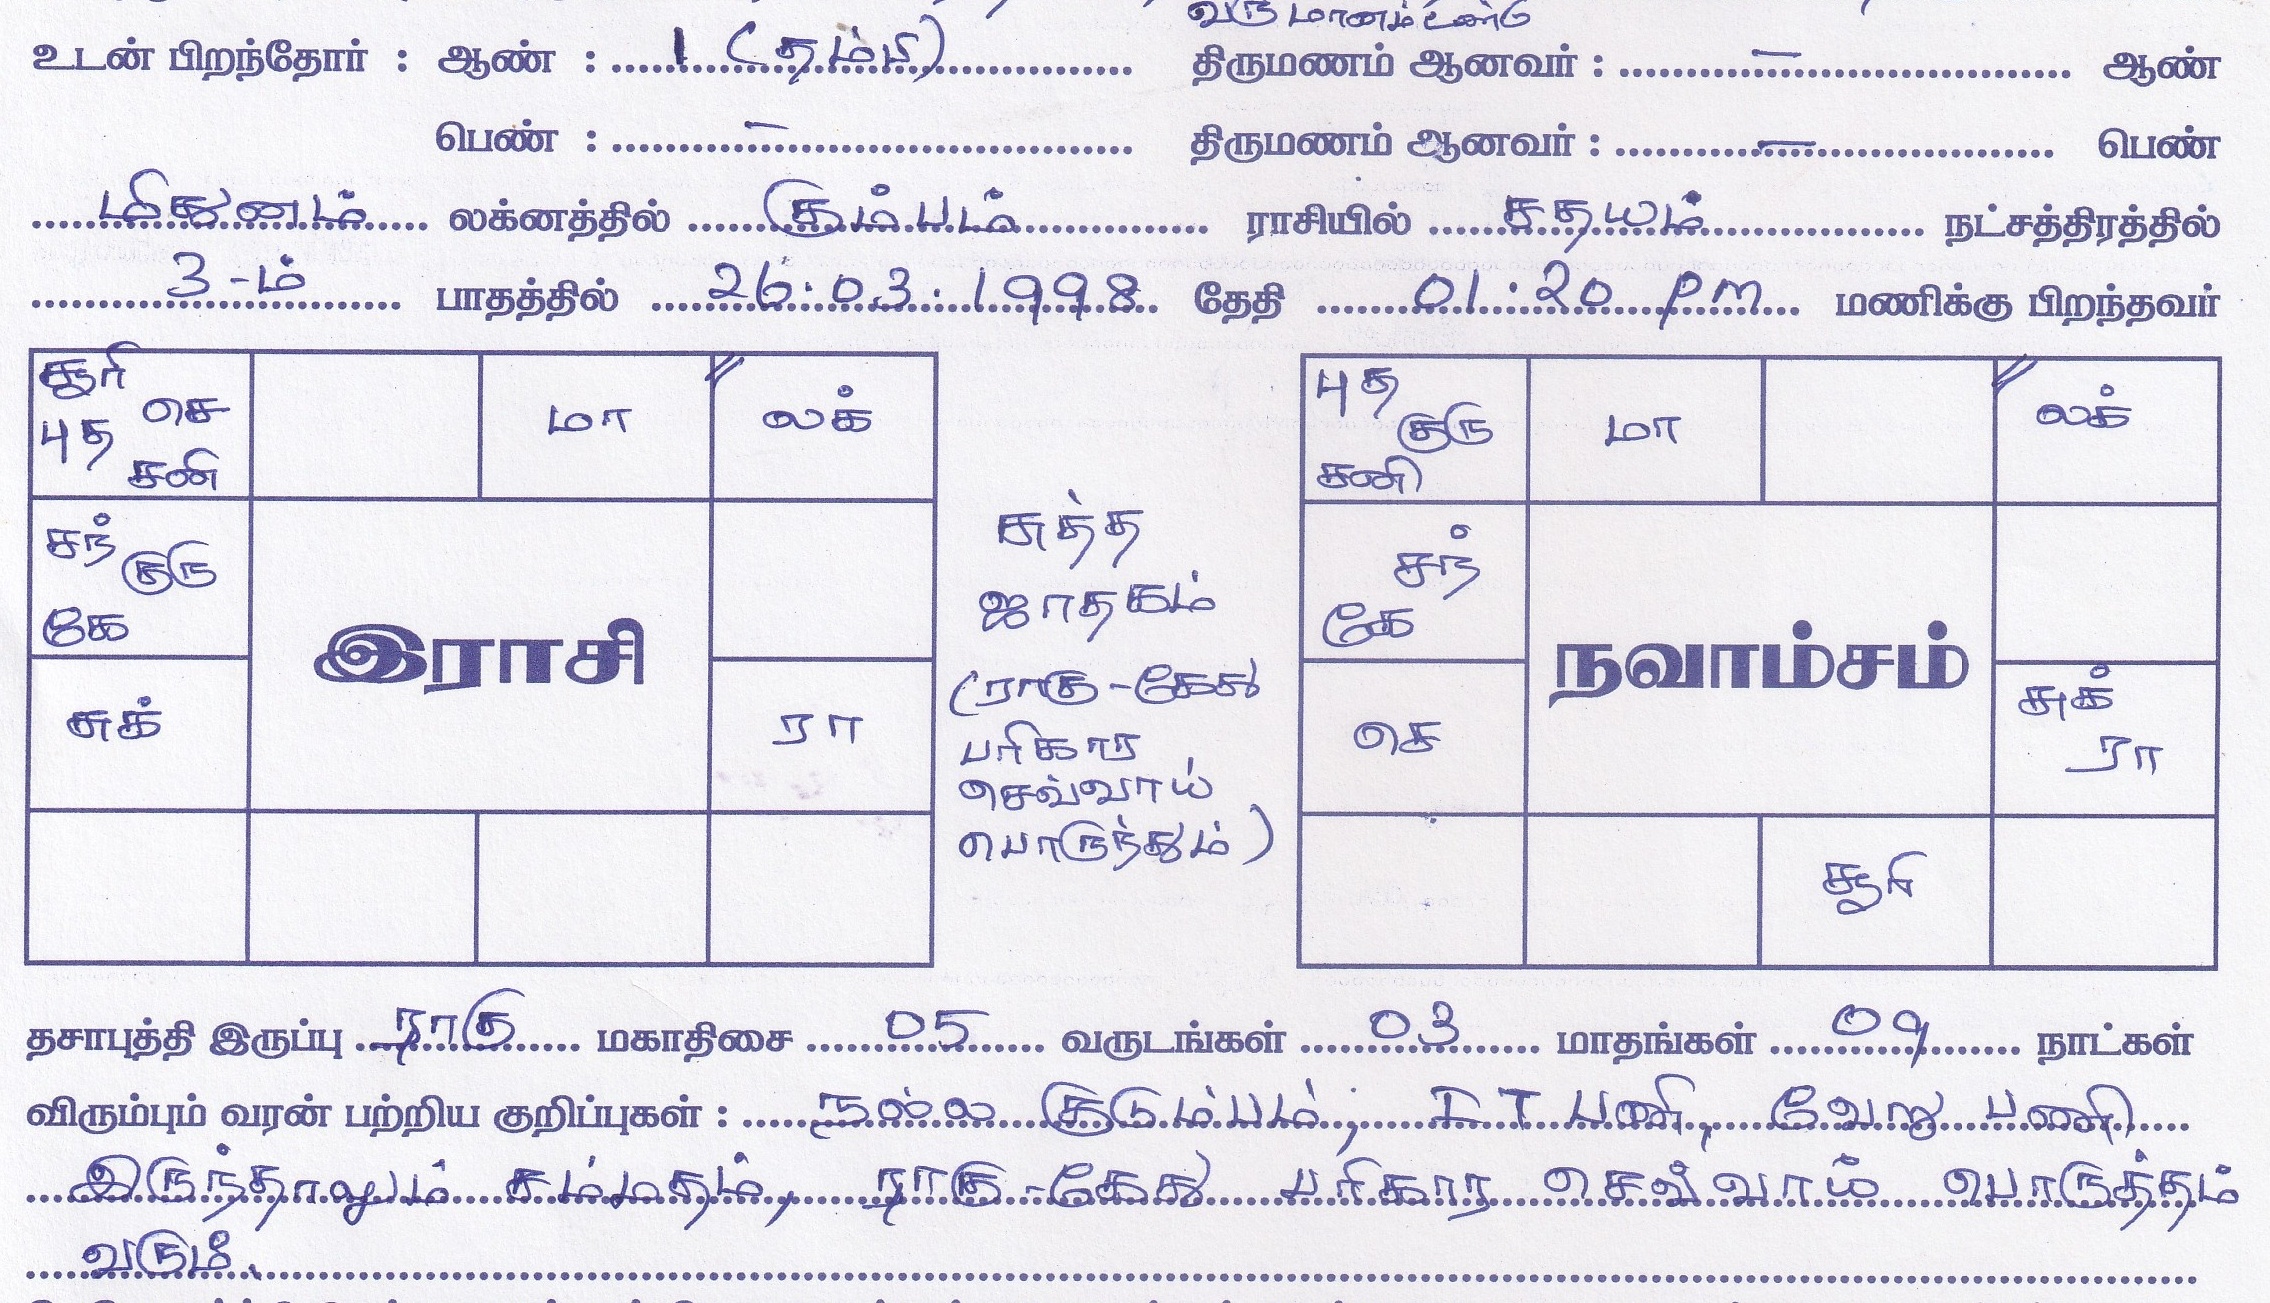 வருமானம் உண்டு
உடன் பிறந்தோர் : ஆண் : 1 (தம்பி) திருமணம் ஆனவர் : – ஆண்
பெண் : – திருமணம் ஆனவர் : – பெண்
மிதுனம் லக்னத்தில் கும்பம் ராசியில் சதயம் நட்சத்திரத்தில்
3-ம் பாதத்தில் 26.03.1998 தேதி 01.20 PM மணிக்கு பிறந்தவர்
சூரி செ புத சனி
மா
லக்
சந் குரு கே
இராசி
சுக்
ரா
சுத்த
ஜாதகம்
(ராகு-கேது
பரிகார
செவ்வாய்
பொருந்தும்)
புத குரு சனி
மா
லக்
சந் கே
நவாம்சம்
செ
சுக் ரா
சூரி
தசாபுத்தி இருப்பு ராகு மகாதிசை 05 வருடங்கள் 03 மாதங்கள் 09 நாட்கள்
விரும்பும் வரன் பற்றிய குறிப்புகள் : நல்ல குடும்பம், IT பணி, வேறு பணி
இருந்தாலும் சம்மதம், ராகு-கேது பரிகார செவ்வாய் பொருத்தம்
வரும்.